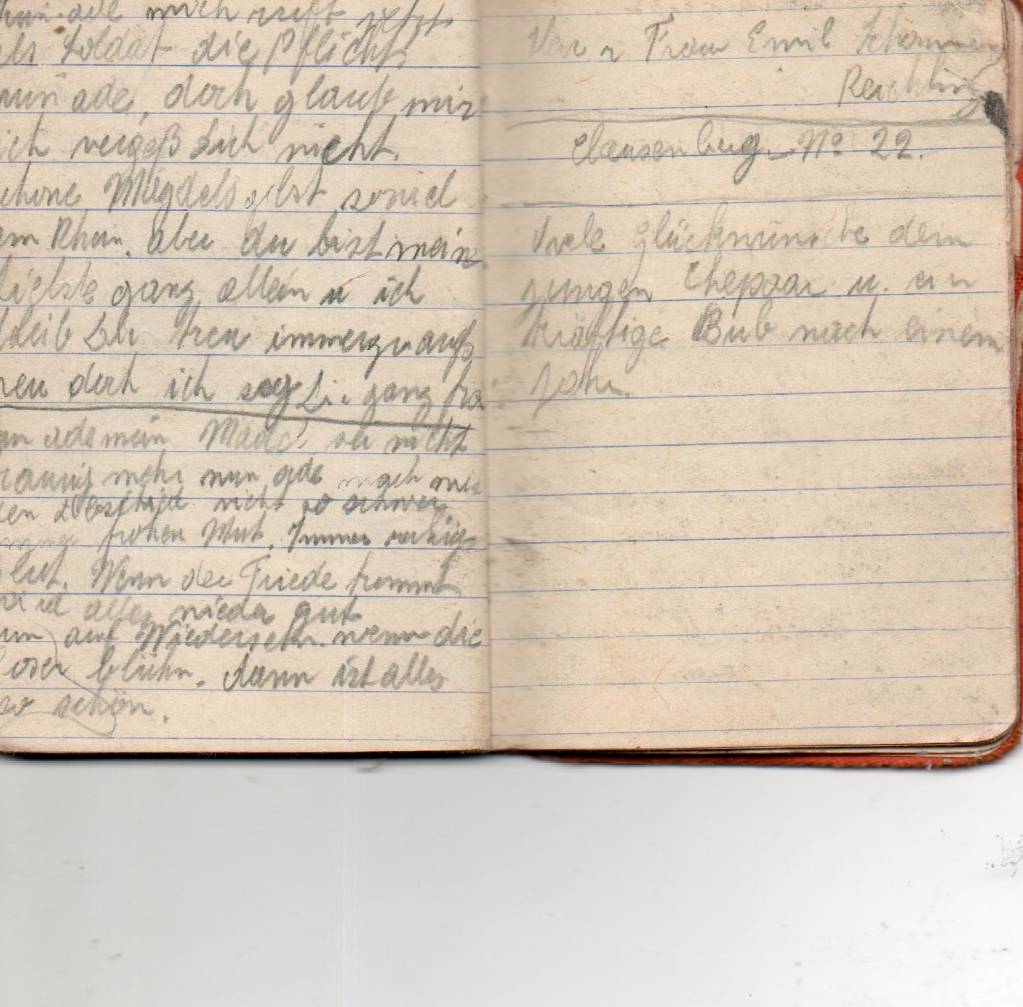 nun ade mich ruft jetzt
als Soldat die Pflicht
nun ade, doch glaub mir
ich vergeß Dich nicht.
schöne Mägdels gibt soviel
am Rhein. aber du bist mein
liebste ganz allein u ich
bleib Dir treu immerzu aufs
neu doch ich sag Dir ganz
ade mein Mädel sei nicht
traurig mehr nun ade mach mir
den Abschied nicht so schwer
immer frohen Mut. Immer ruhig
Blut. Wenn der Friede kommt
wird alles wieder gut
nun auf Wiedersehn. wenn die
Rosen blühn. dann ist alles
so schön.
Frau Emil
Reichling
Clausenberg No 22.
Viele Glückwünsche dem
jungen Ehepaar u. ein
kräftige Bub nach einem
Jahr.